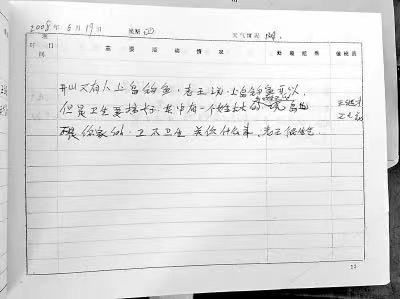 2008年6月19日 星期四 天气情况 晴
时间 主要活动情况 处理结果 值班员
开山又有人上岛钓鱼，老王说，上岛钓鱼可以，
但是卫生要搞好，其中有一个姓
是你家的，卫不卫生 关你什么事，老王很生气。
王继才
王仕花